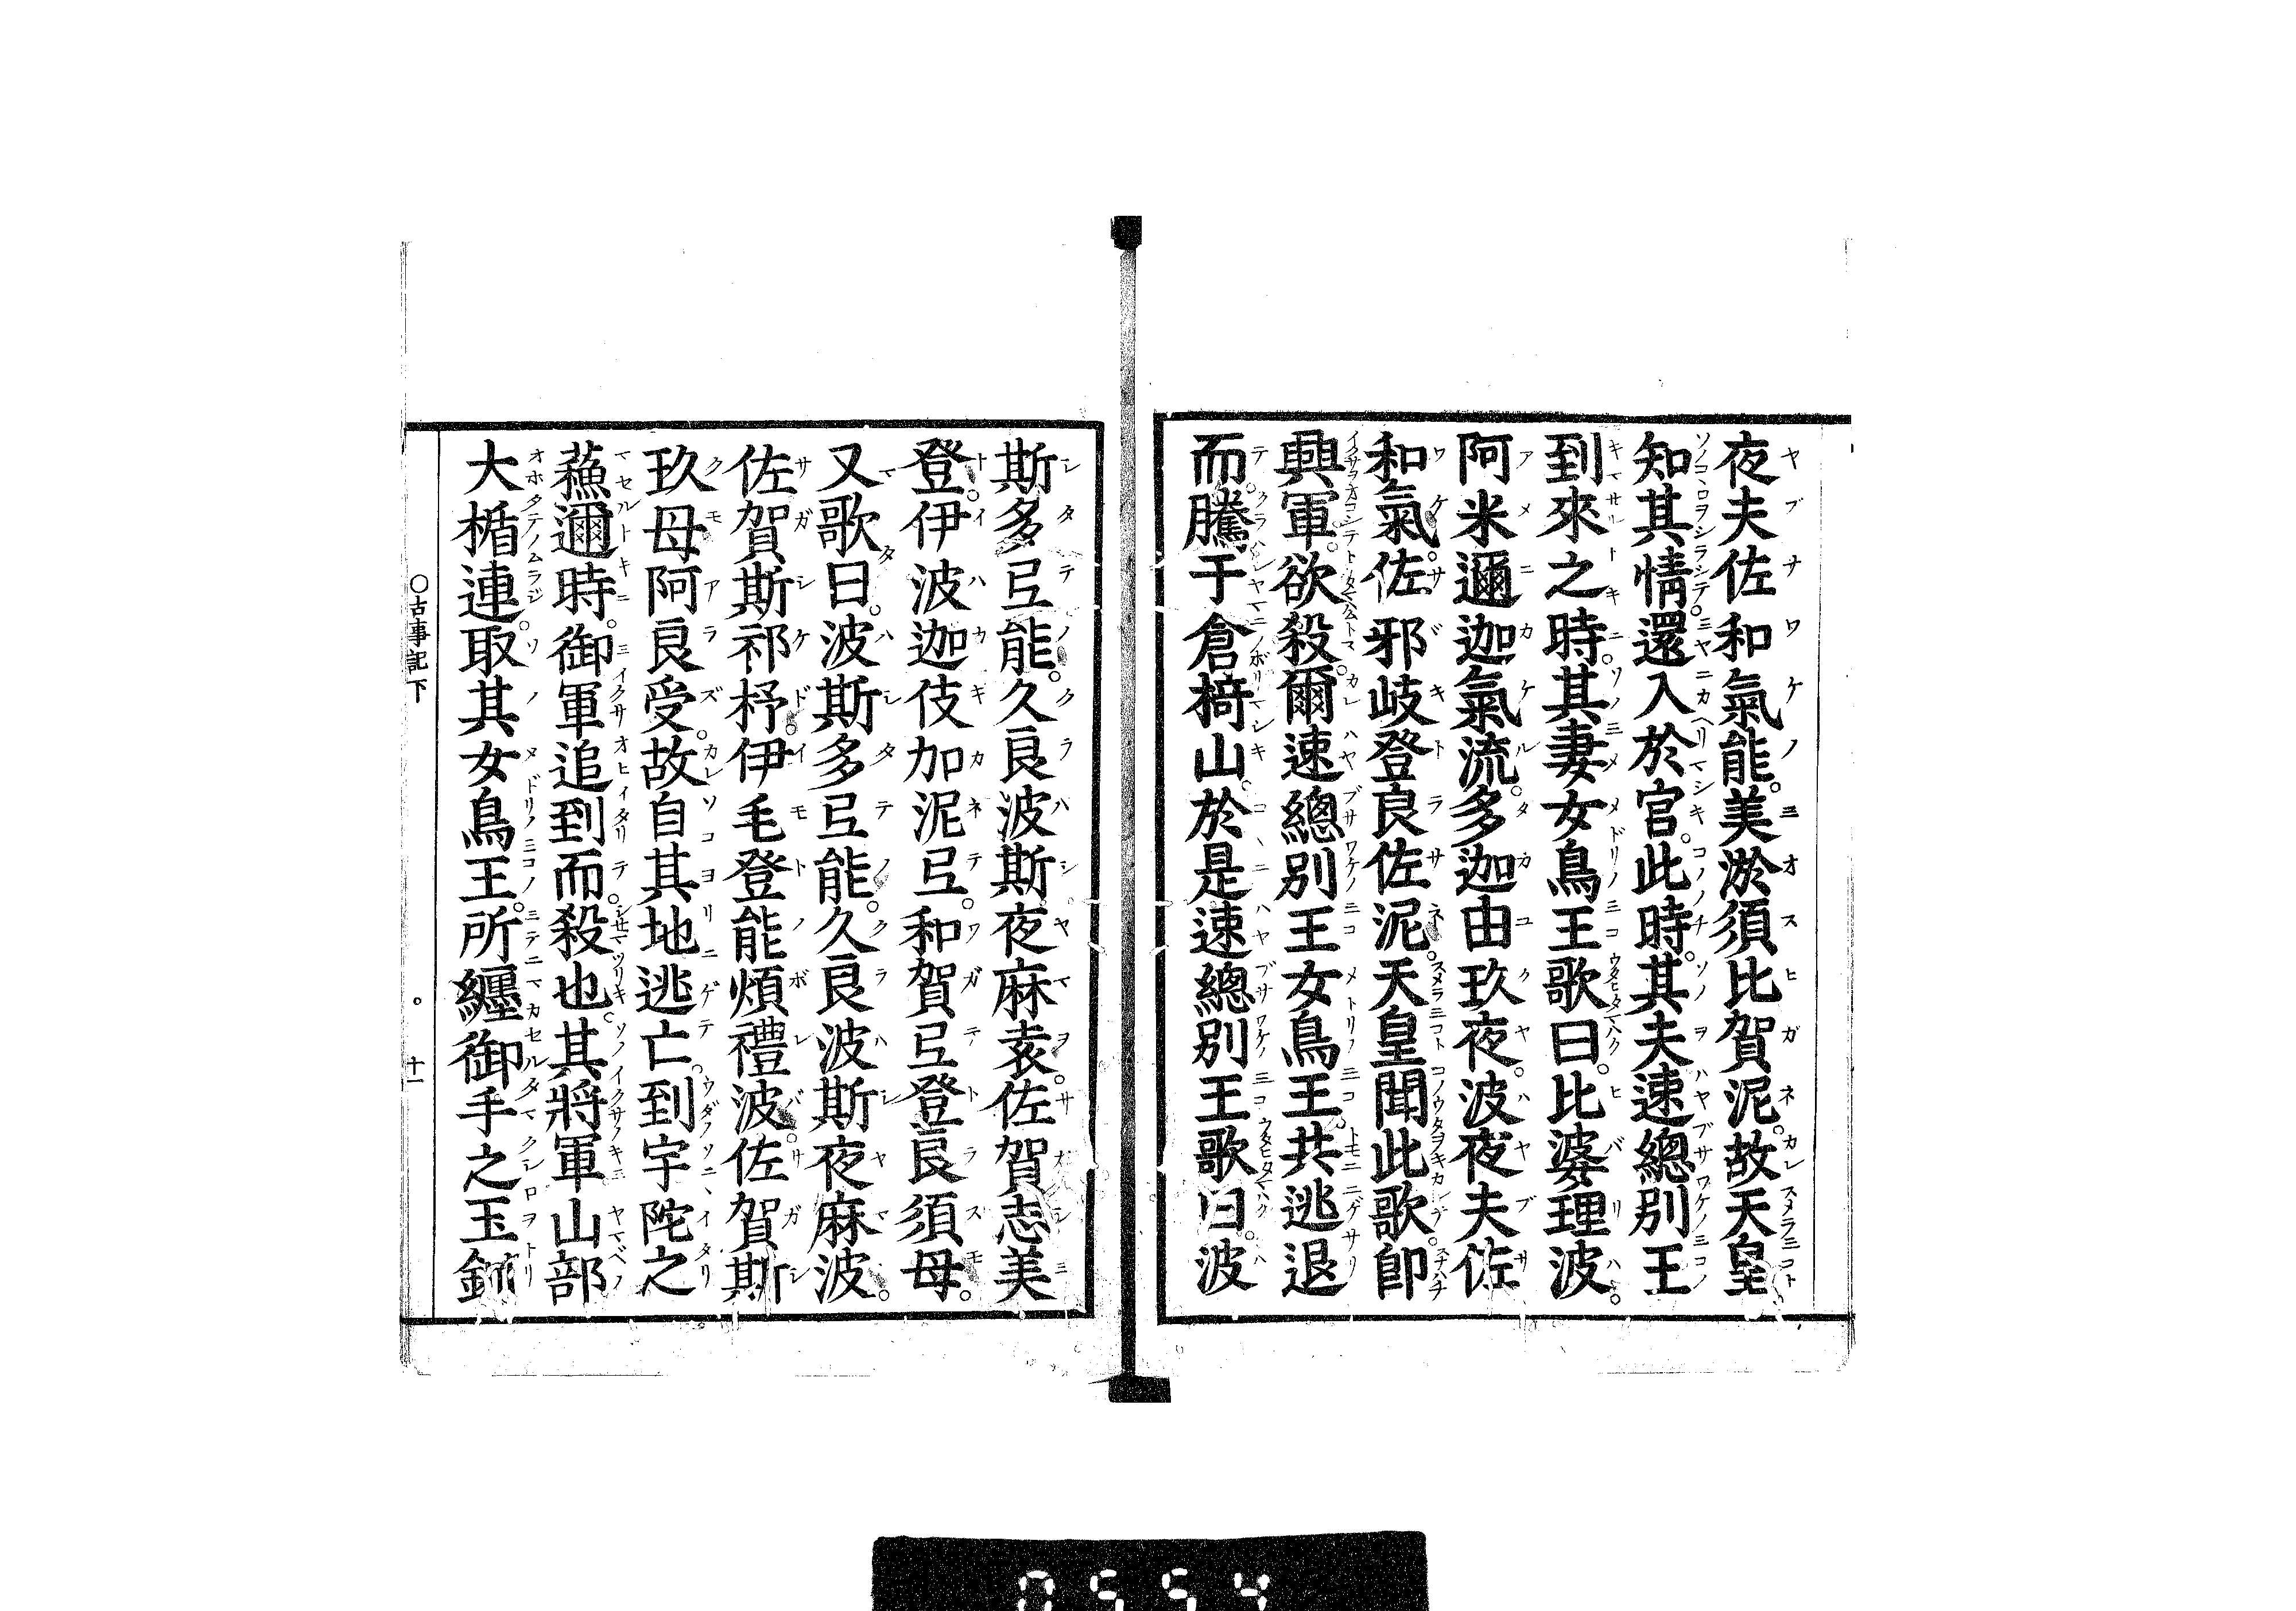 夜夫佐和氣能。美淤須比賀泥。故天皇
知其情。還入於宮。此時。其夫速總別王
到來之時。其妻女鳥王歌曰。比婆理波。
阿米邇迦氣流。多迦由玖夜。波夜夫佐
和氣。佐邪岐登良佐泥。天皇聞此歌。卽
興軍。欲殺。爾速總別王女鳥王。共逃退
而。騰于倉椅山。於是速總別王歌曰。波
斯多弖能。久良波斯夜麻袁。佐賀志美
登。伊波迦伎加泥弖。和賀弖登良須母。
又歌曰。波斯多弖能。久良波斯夜麻波。
佐賀斯祁杼。伊毛登能煩禮波。佐賀斯
玖母阿良受。故自其地逃亡。到宇陀之
蘓邇時。御軍追到而。殺也。其將軍山部
大楯連。取其女鳥王。所纒御手之玉釧
○古事記下 。 十一
0554